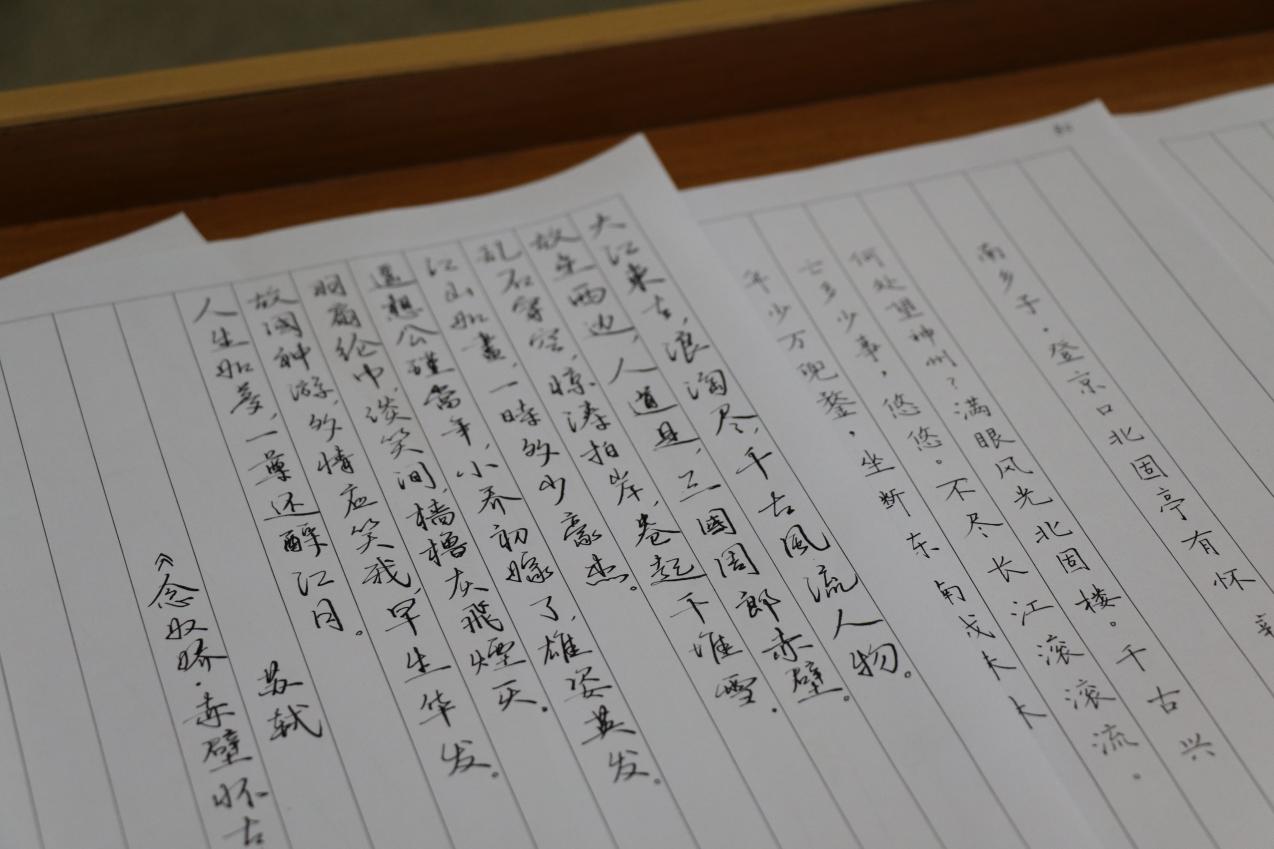 南乡子·登京口北固亭有怀 辛
何处望神州?满眼风光北固楼。千古兴
亡多少事,悠悠。不尽长江滚滚流。
年少万兜鍪,坐断东南
大江東去,浪淘尽,千古風流人物。
故垒西边,人道是,三國周郎赤壁。
乱石穿空,惊涛拍岸,卷起千堆雪.
江山如畫,一時多少豪杰。
遥想公瑾當年,小乔初嫁了,雄姿英发。
羽扇纶巾,谈笑间,樯橹灰飛煙灭.
故國神游,多情应笑我,早生华发。
人生如夢,一尊还酹江月。
苏轼
《念奴娇·赤壁怀古